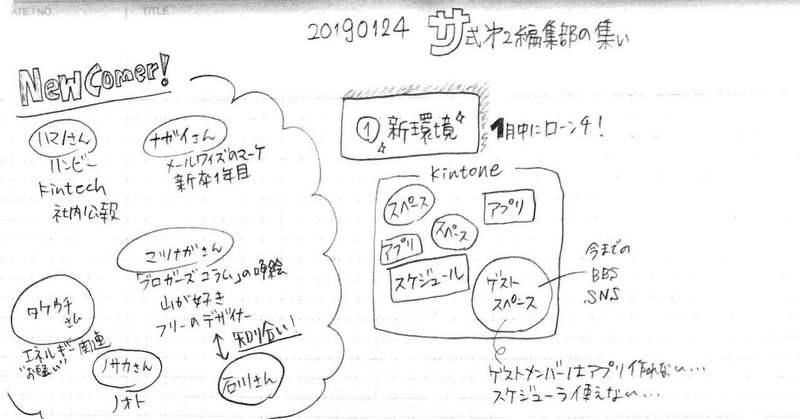 DATE/NO.
TITLE
20190124 サ式第2編集部の集い
New Comer!
ハマノさん
ハンビー
Kintech
社内広報
ナガイさん
メールワイズのマーケ
新卒1年目
マツナガさん
「ブロガーズコラム」の挿絵
山が好き
フリーのデザイナー
タケウチさん
エネルギー関連
"お堅い"
ノサカさん
ノオト
知り合い!
石川さん
① 新環境
1月中にローンチ!
Kintone
スペース
アプリ
スペース
アプリ
スケジュール
ゲスト
スペース
今までの
BBS
SNS
ゲストメンバーはアプリ作れない…
スケジューラ使えない…